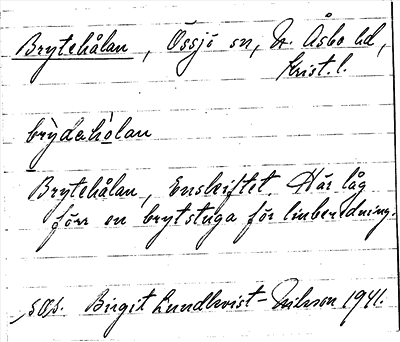 Brytehålan, Össjö sn, N. Åsbo hd,
Krist. l.
brỳdehòlan
Brytehålan, Enskiftet. Här låg
förr en brytstuga för linberedning.
Birgit Lundkvist-Nilsson 1941.